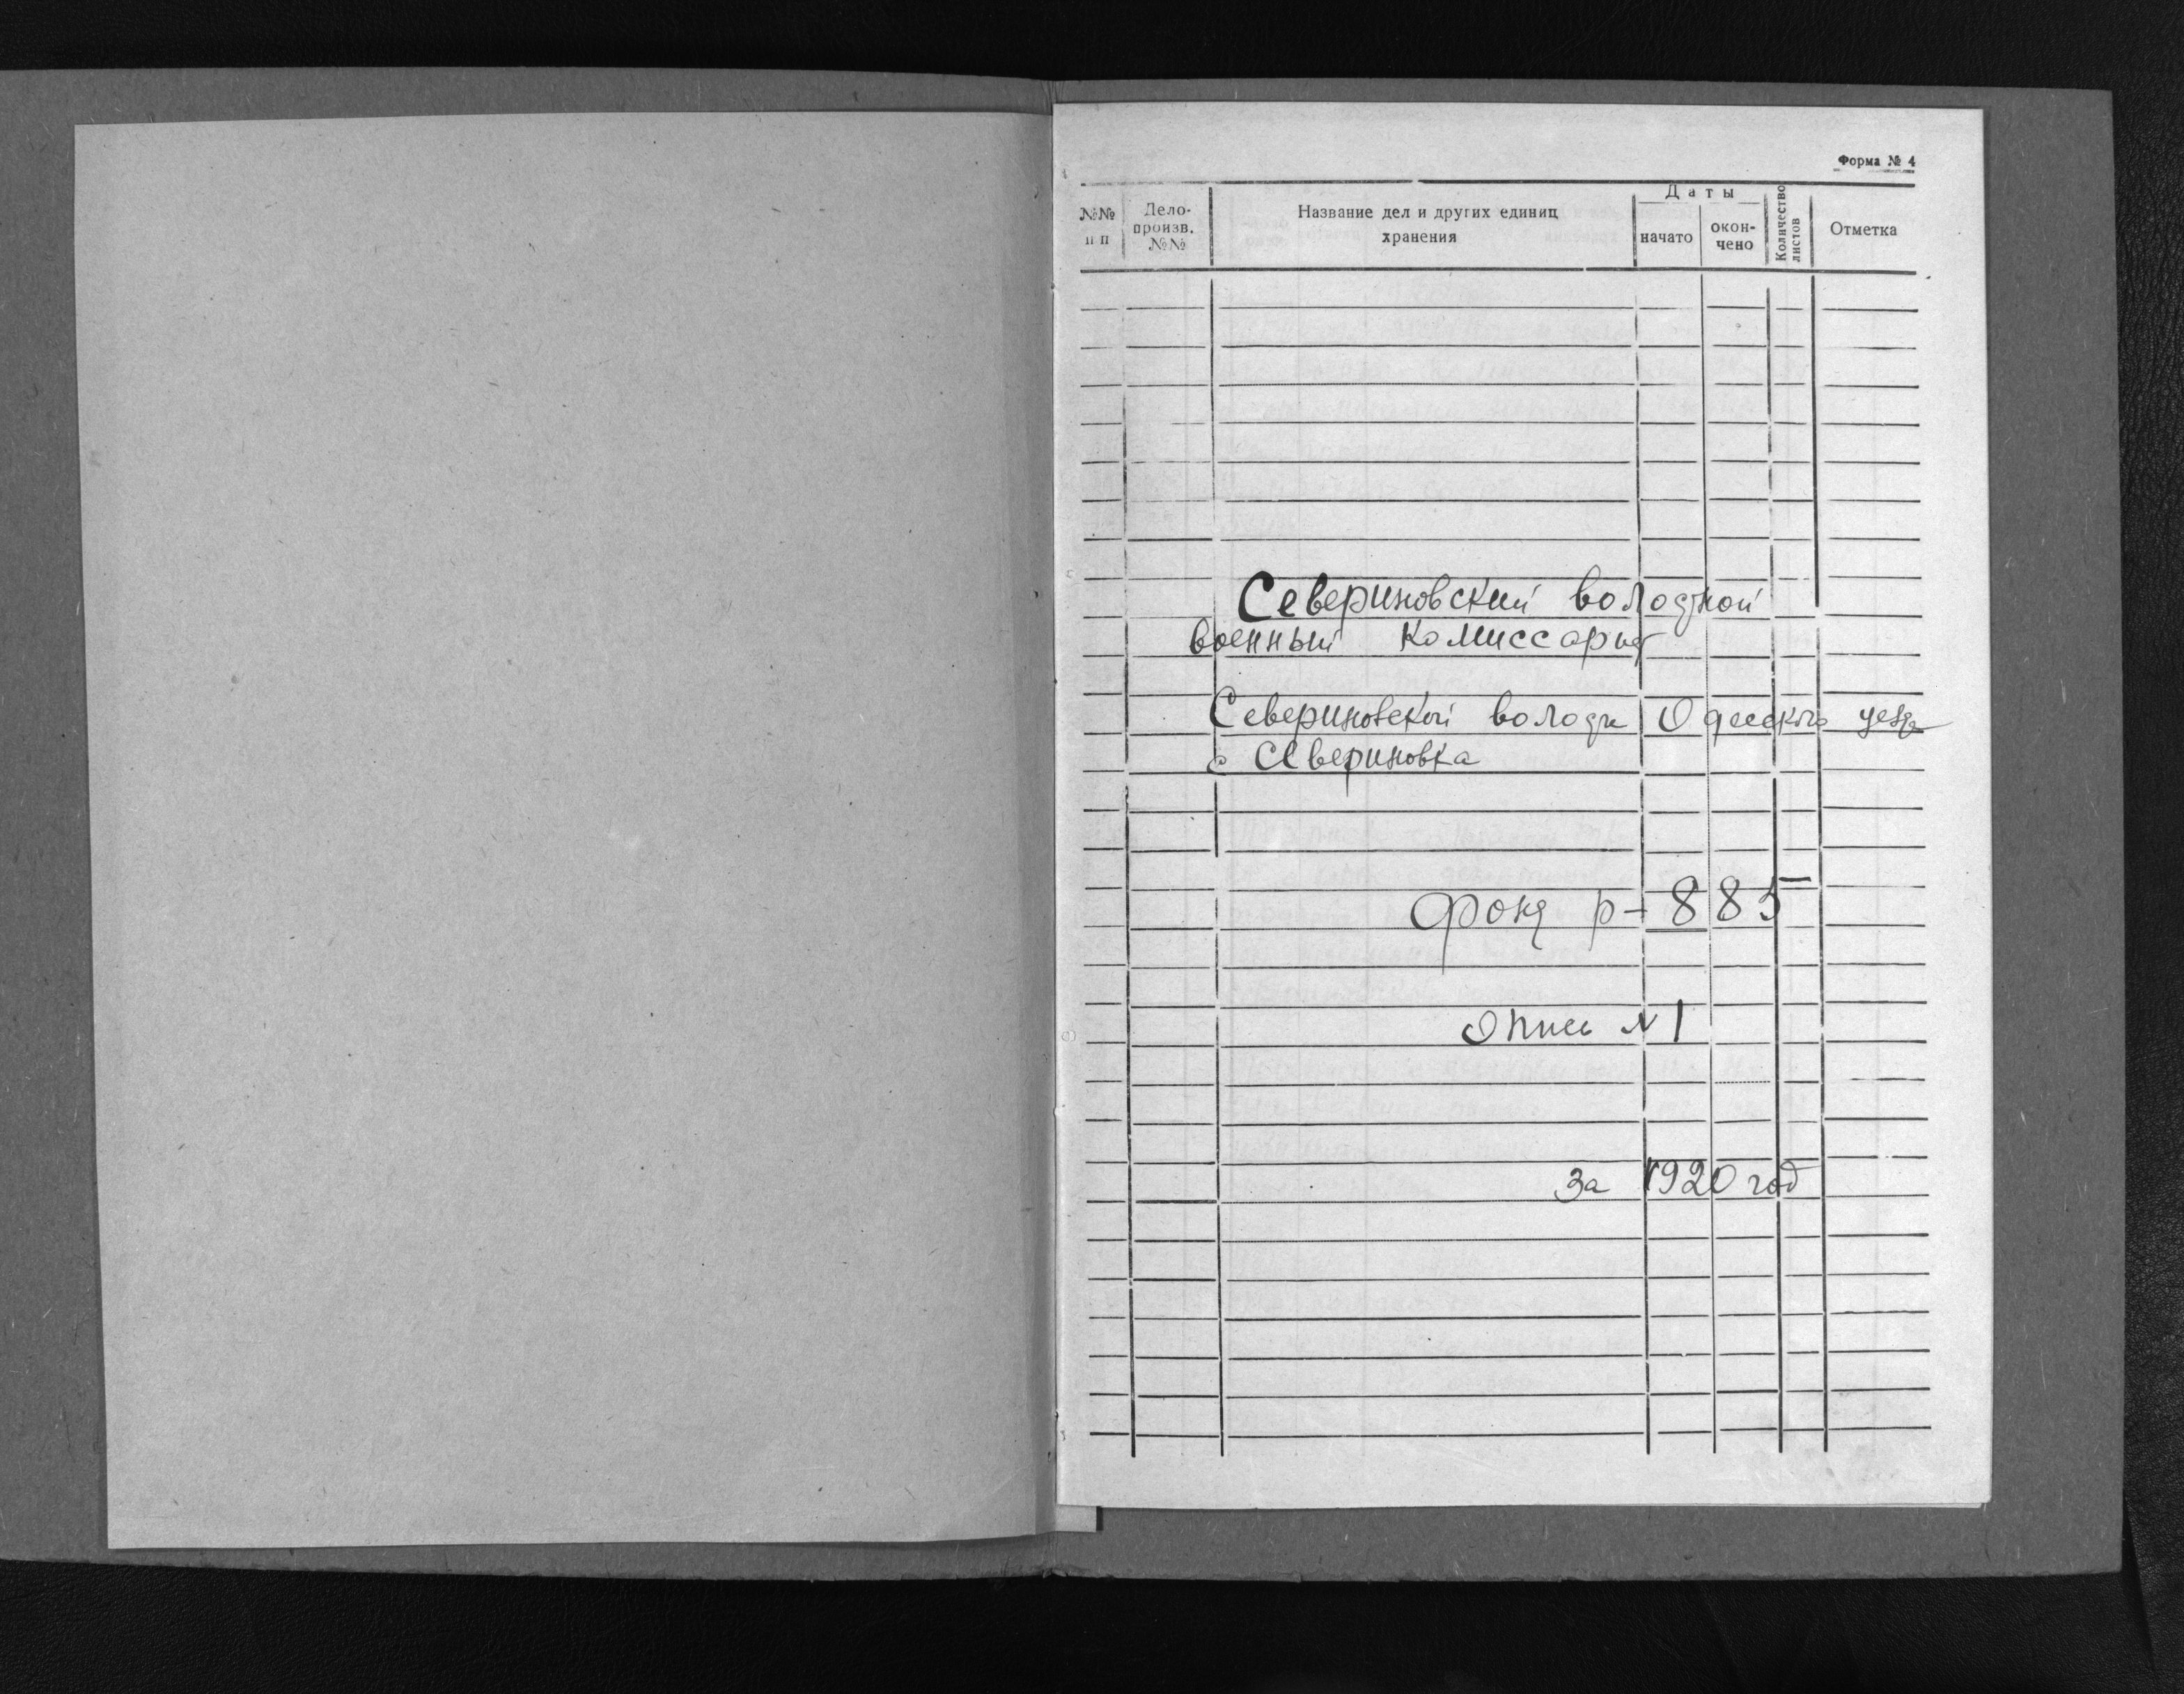 Форма № 4
№№ п п
Дело-произв. №№
Название дел и других единиц хранения
Даты
начато
окон-чено
Количество листов
Отметка
Севериновский волостной
военный комиссариат
Севериновской волости Одесского уезда
с Севериновка
Фонд р-885
Опись N 1
За 1920 год